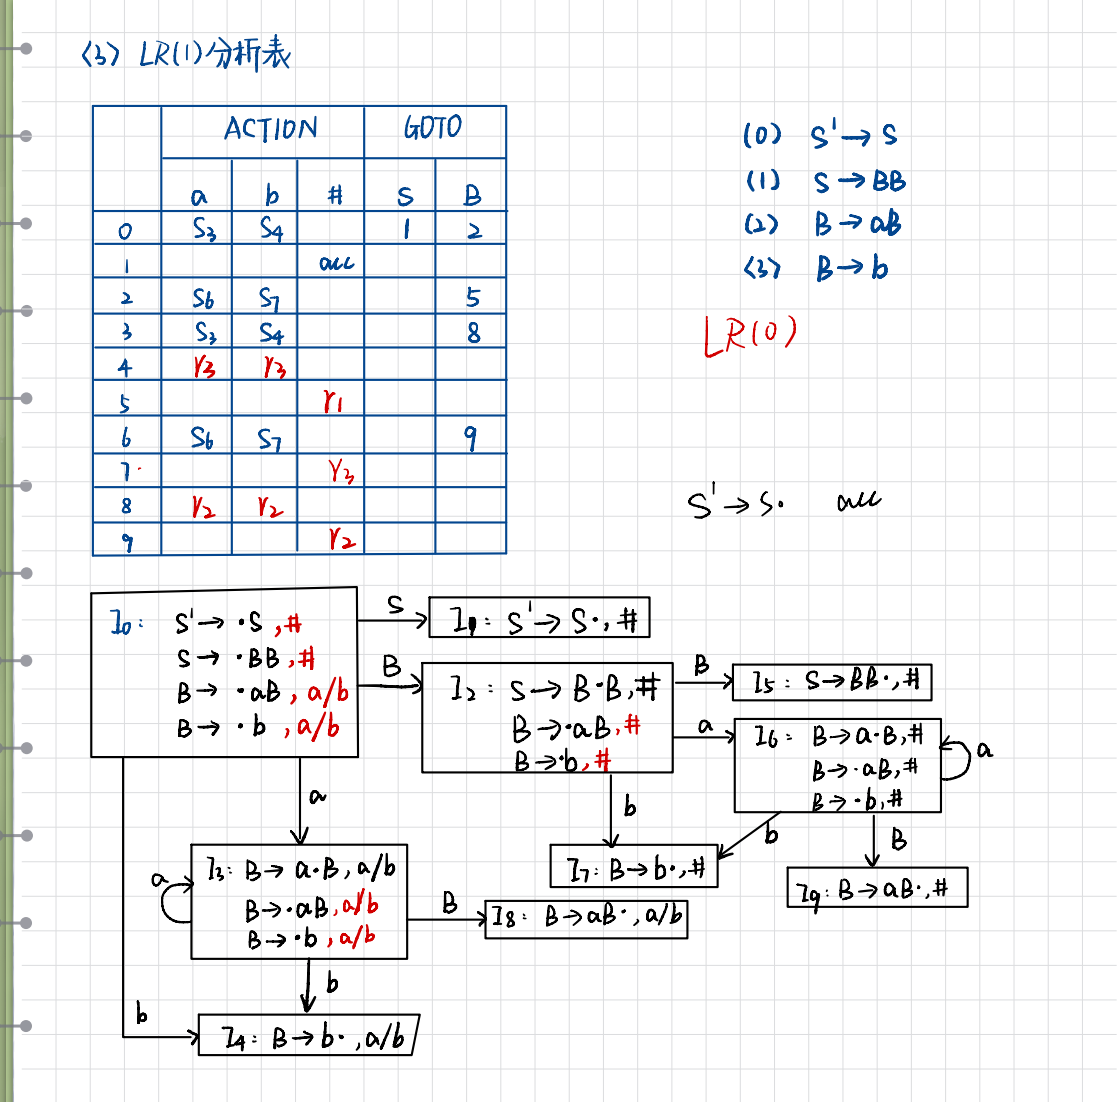 <3> LR(1)分析表
ACTION GOTO
a b # S B
0 S3 S4 1 2
1 acc
2 S6 S7 5
3 S3 S4 8
4 r3 r3
5 r1
6 S6 S7 9
7 r3
8 r2 r2
9 r2
(0) S'→S
(1) S→BB
(2) B→aB
<3> B→b
LR(0)
S'→S· acc
I0: S'→·S,#
S→·BB,#
B→·aB,a/b
B→·b,a/b
S
I1: S'→S·,#
B
I2: S→B·B,#
B→·aB,#
B→·b,#
B
I5: S→BB·,#
a
I6: B→a·B,#
B→·aB,#
B→·b,#
a
b
b
B
I7: B→b·,#
I9: B→aB·,#
a
a
I3: B→a·B,a/b
B→·aB,a/b
B→·b,a/b
B
I8: B→aB·,a/b
b
b
I4: B→b·,a/b